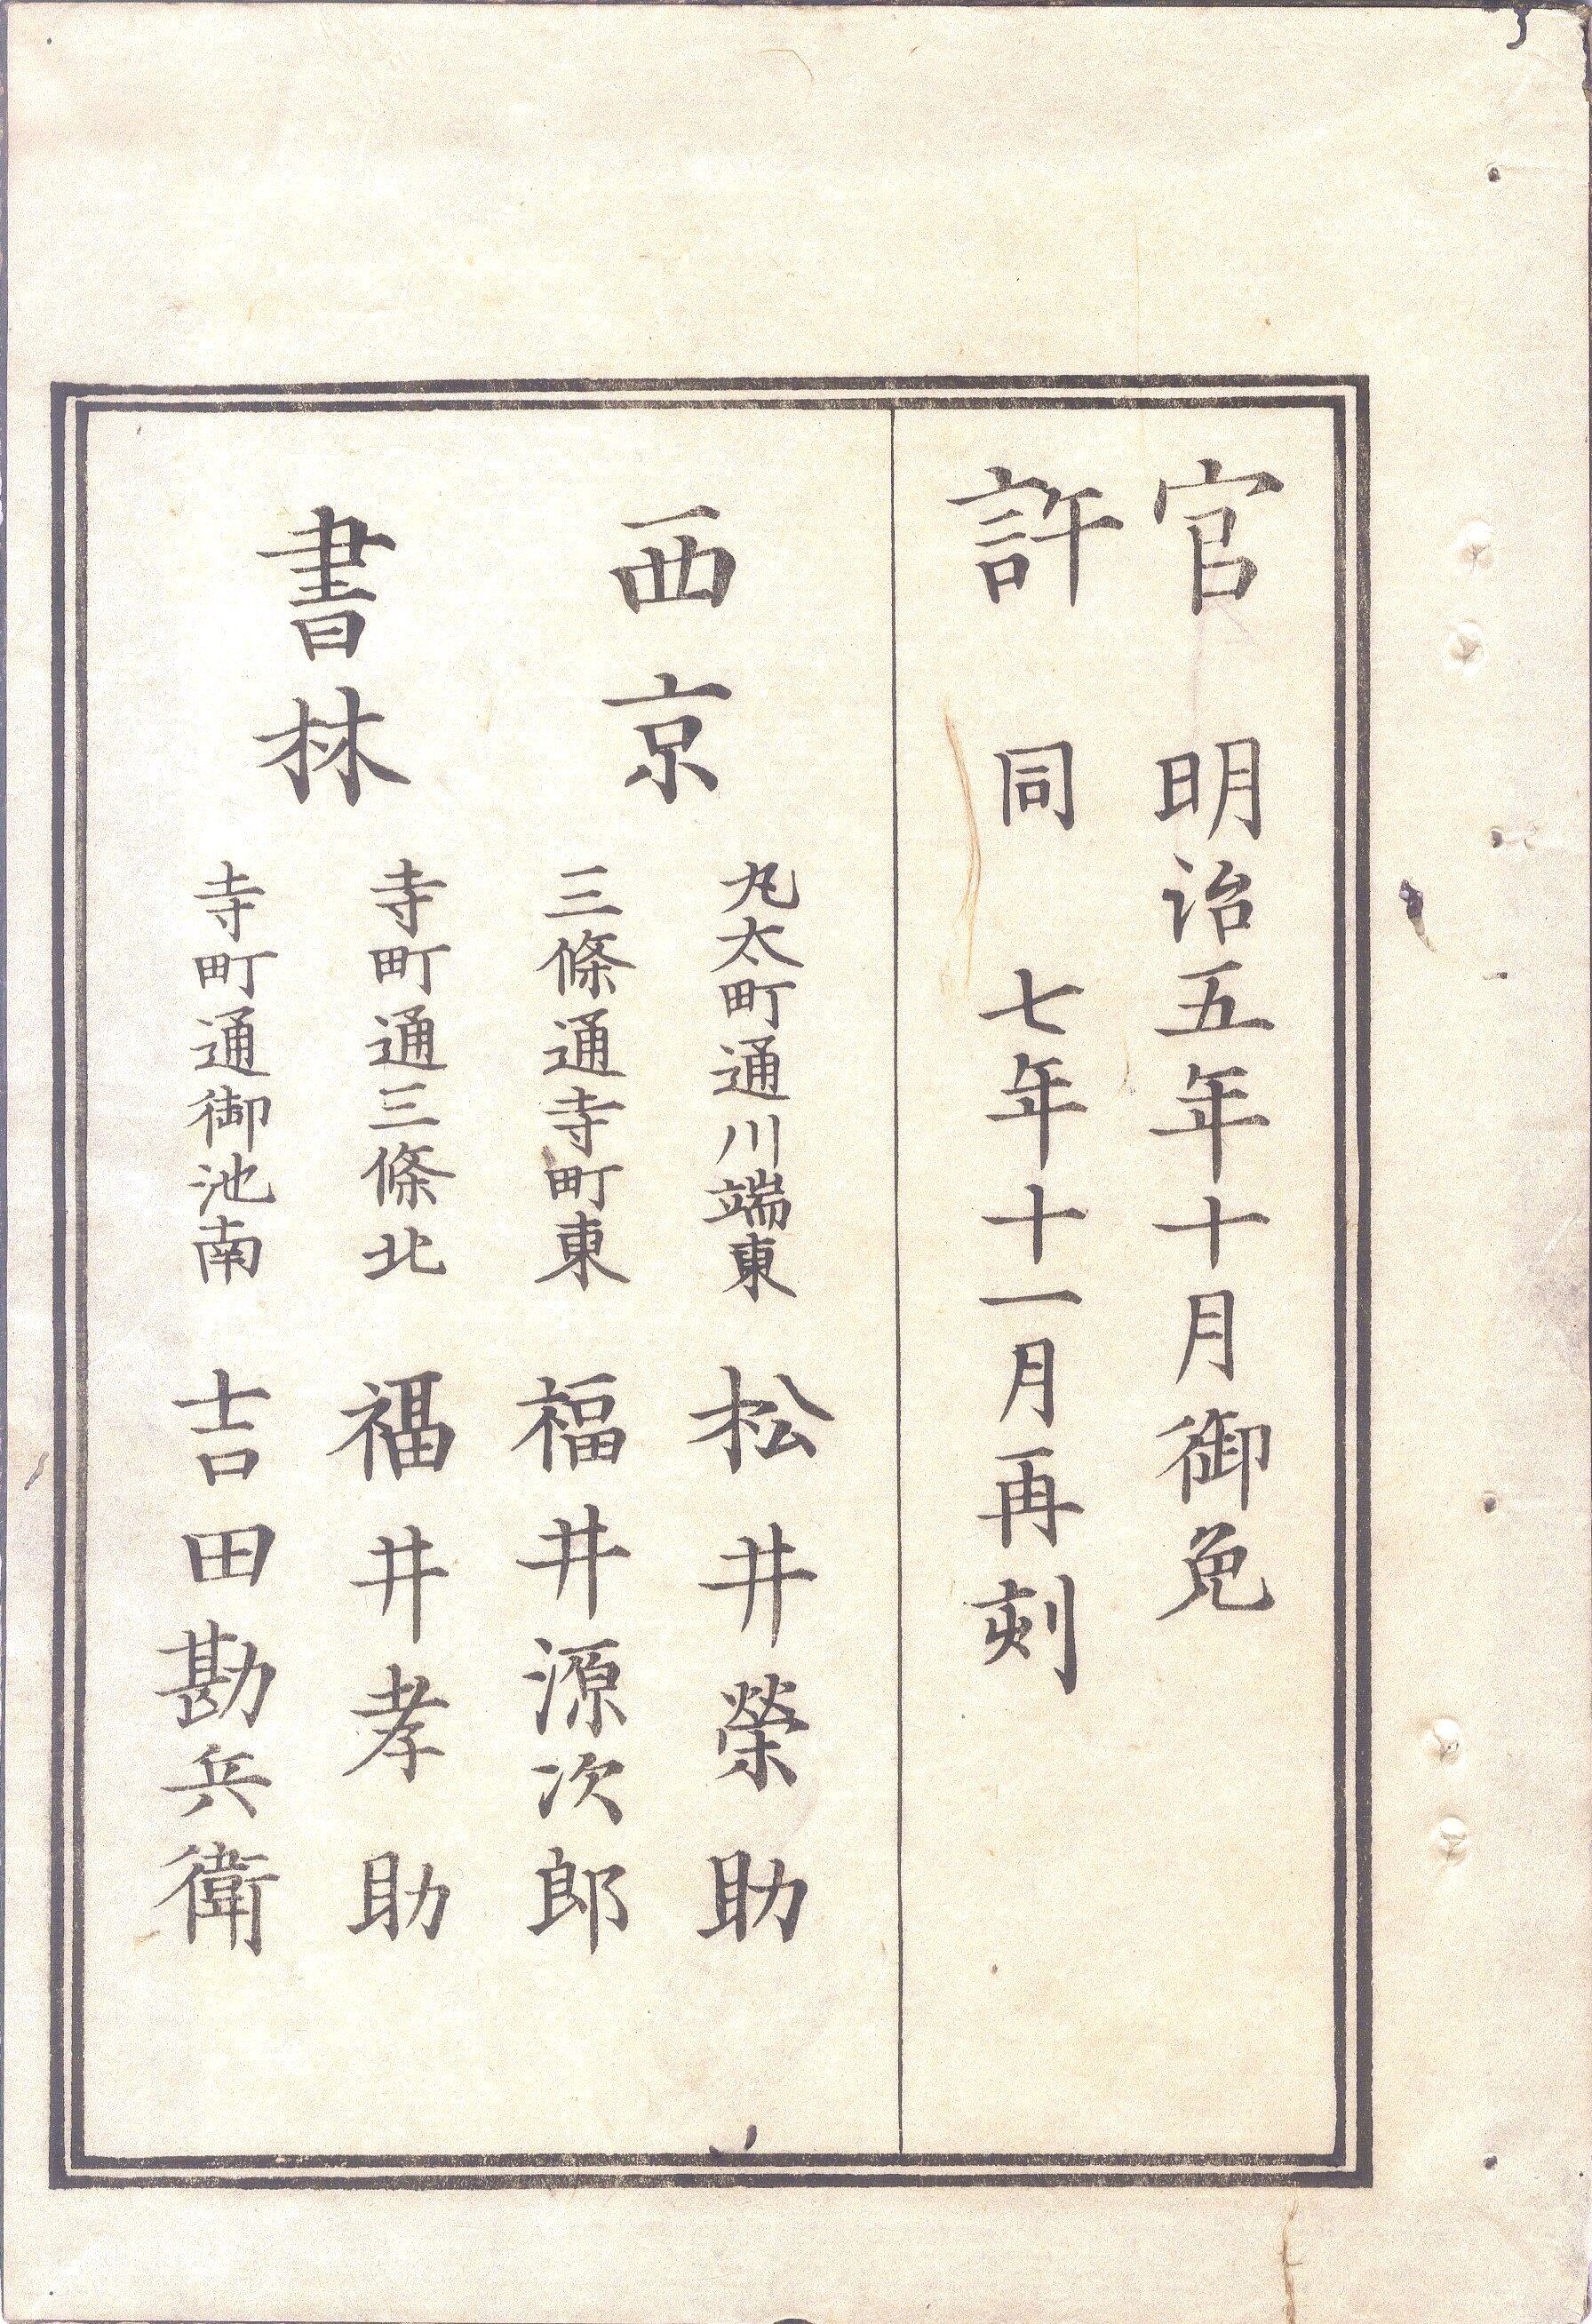 官許
明治五年十月御免
同 七年十一月再刻
西京
書林
丸太町通川端東 松井榮助
三條通寺町東 福井源次郎
寺町通三條北 福井孝助
寺町通御池南 吉田勘兵衛